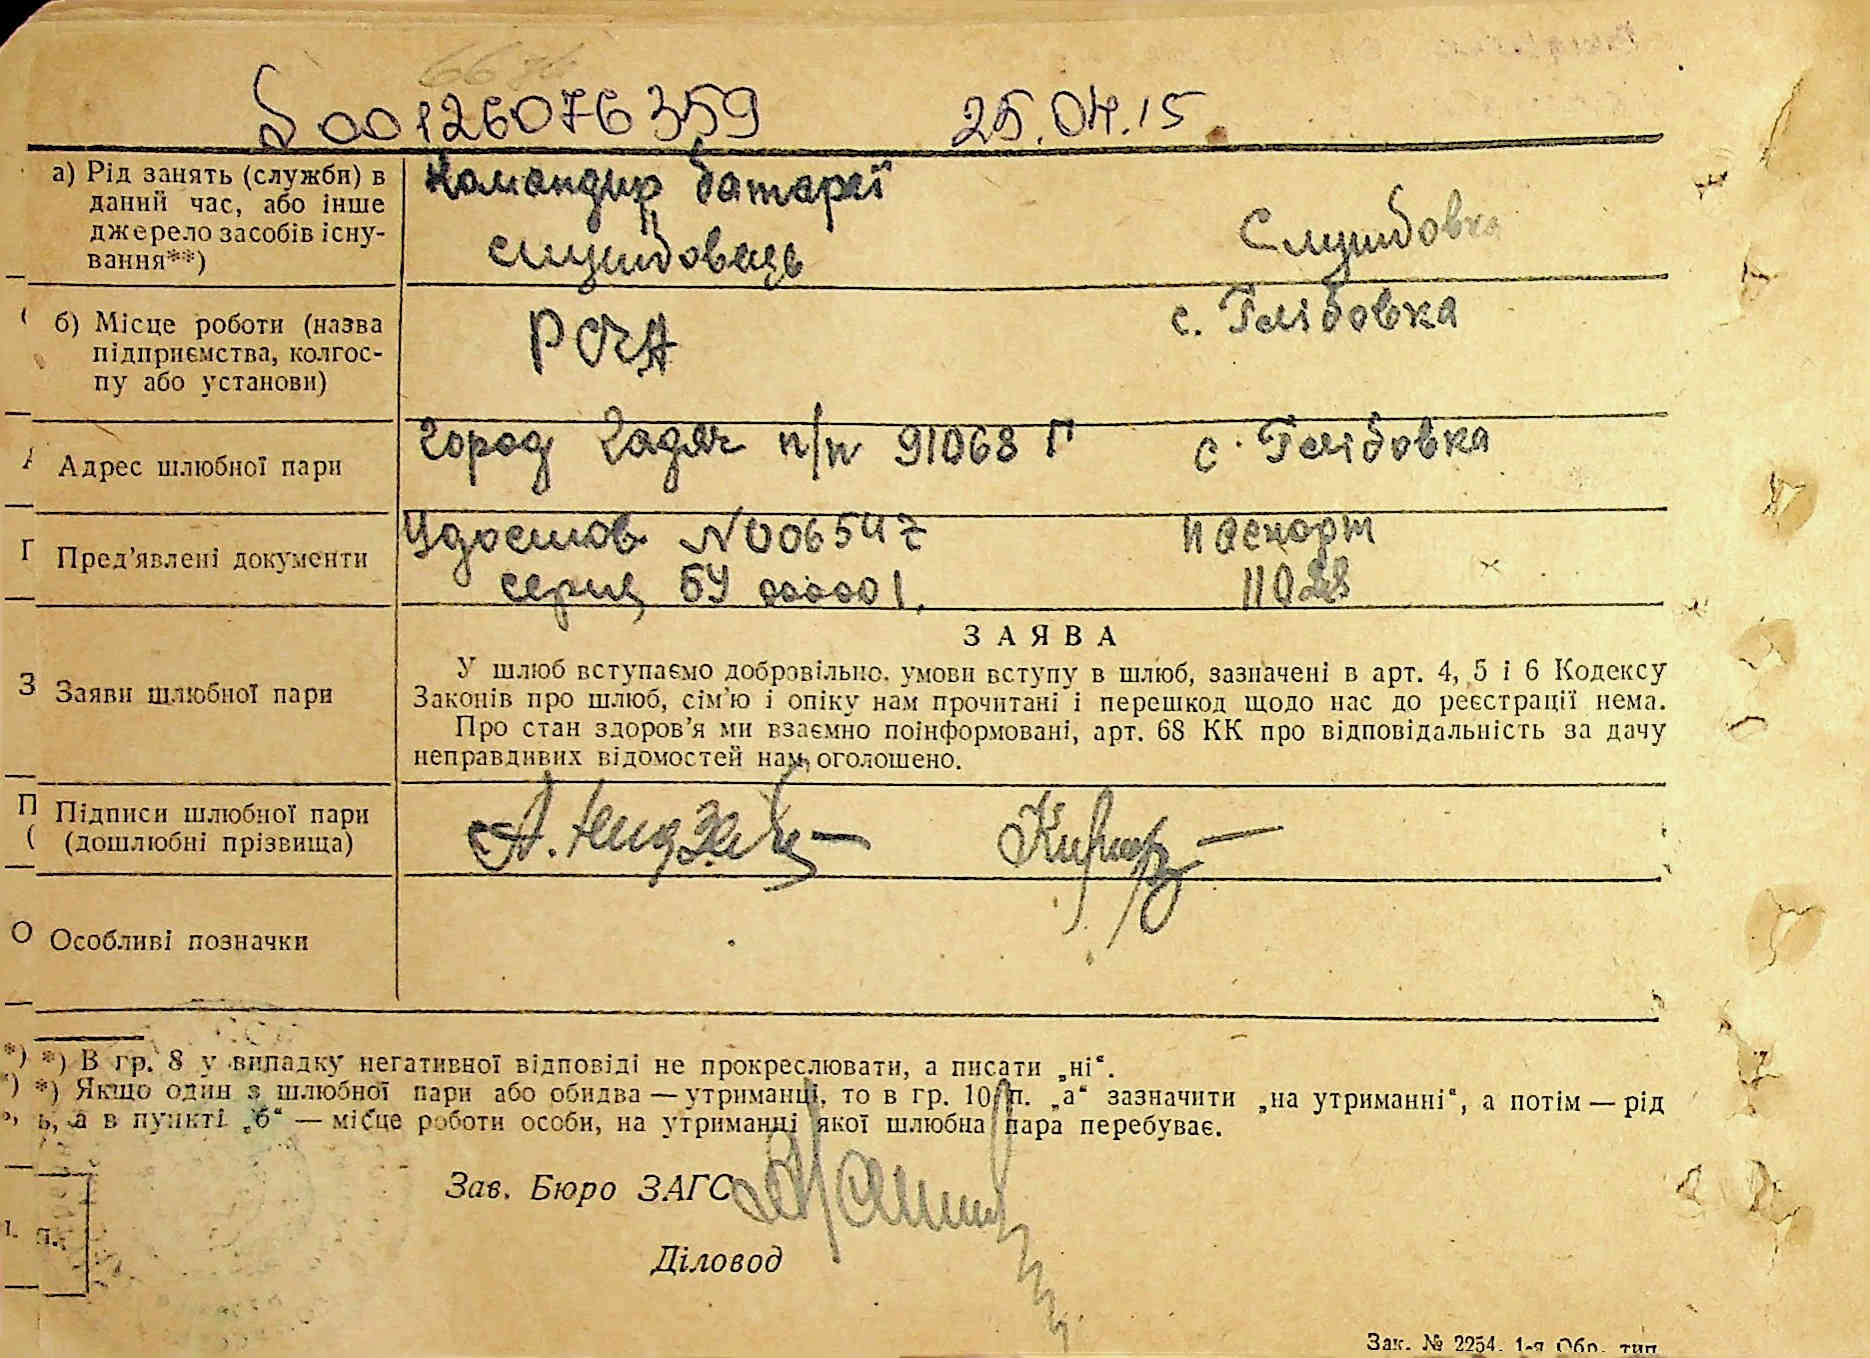 00126076359 25.04.15
а) Рід занять (служби) в даний час, або інше джерело засобів існу-вання**)
Командир батареї
службовець Службовка
б) Місце роботи (назва підприємства, колгос-пу або установи)
РСЧА с. Глібовка
Адрес шлюбної пари
город Гадяч п/п 91068 Г с. Глібовка
Пред'явлені документи
Удостов. №006547 паспорт
серия БУ 000001. 11028
З А Я В А
Заяви шлюбної пари
У шлюб вступаємо добровільно, умови вступу в шлюб, зазначені в арт. 4, 5 і 6 Кодексу
Законів про шлюб, сім'ю і опіку нам прочитані і перешкод щодо нас до реєстрації нема.
Про стан здоров'я ми взаємно поінформовані, арт. 68 КК про відповідальність за дачу
неправдивих відомостей нам оголошено.
Підписи шлюбної пари
(дошлюбні прізвища)
Особливі позначки
*) В гр. 8 у випадку негативної відповіді не прокреслювати, а писати „ні“.
*) Якщо один з шлюбної пари або обидва — утриманці, то в гр. 10 п. „а“ зазначити „на утриманні“, а потім — рід
а в пункті „б“ — місце роботи особи, на утриманні якої шлюбна пара перебуває.
Зав. Бюро ЗАГС
Діловод
Зак. № 2254. 1-я Обр. тип.